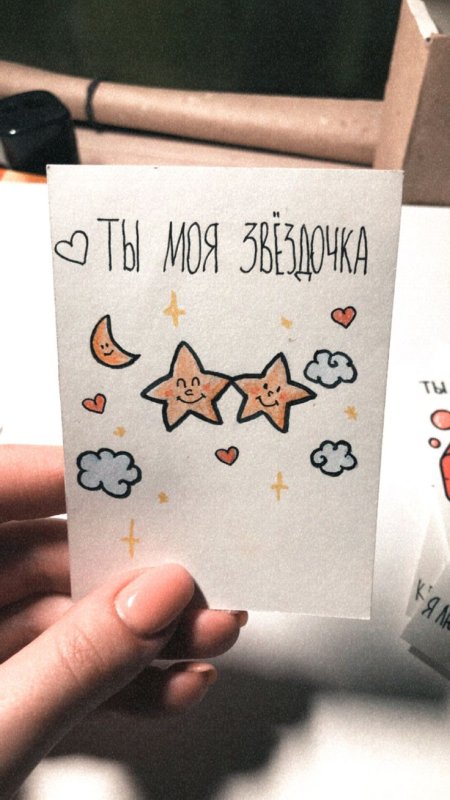 ТЫ МОЯ ЗВЁЗДОЧКА
ТЫ
Я